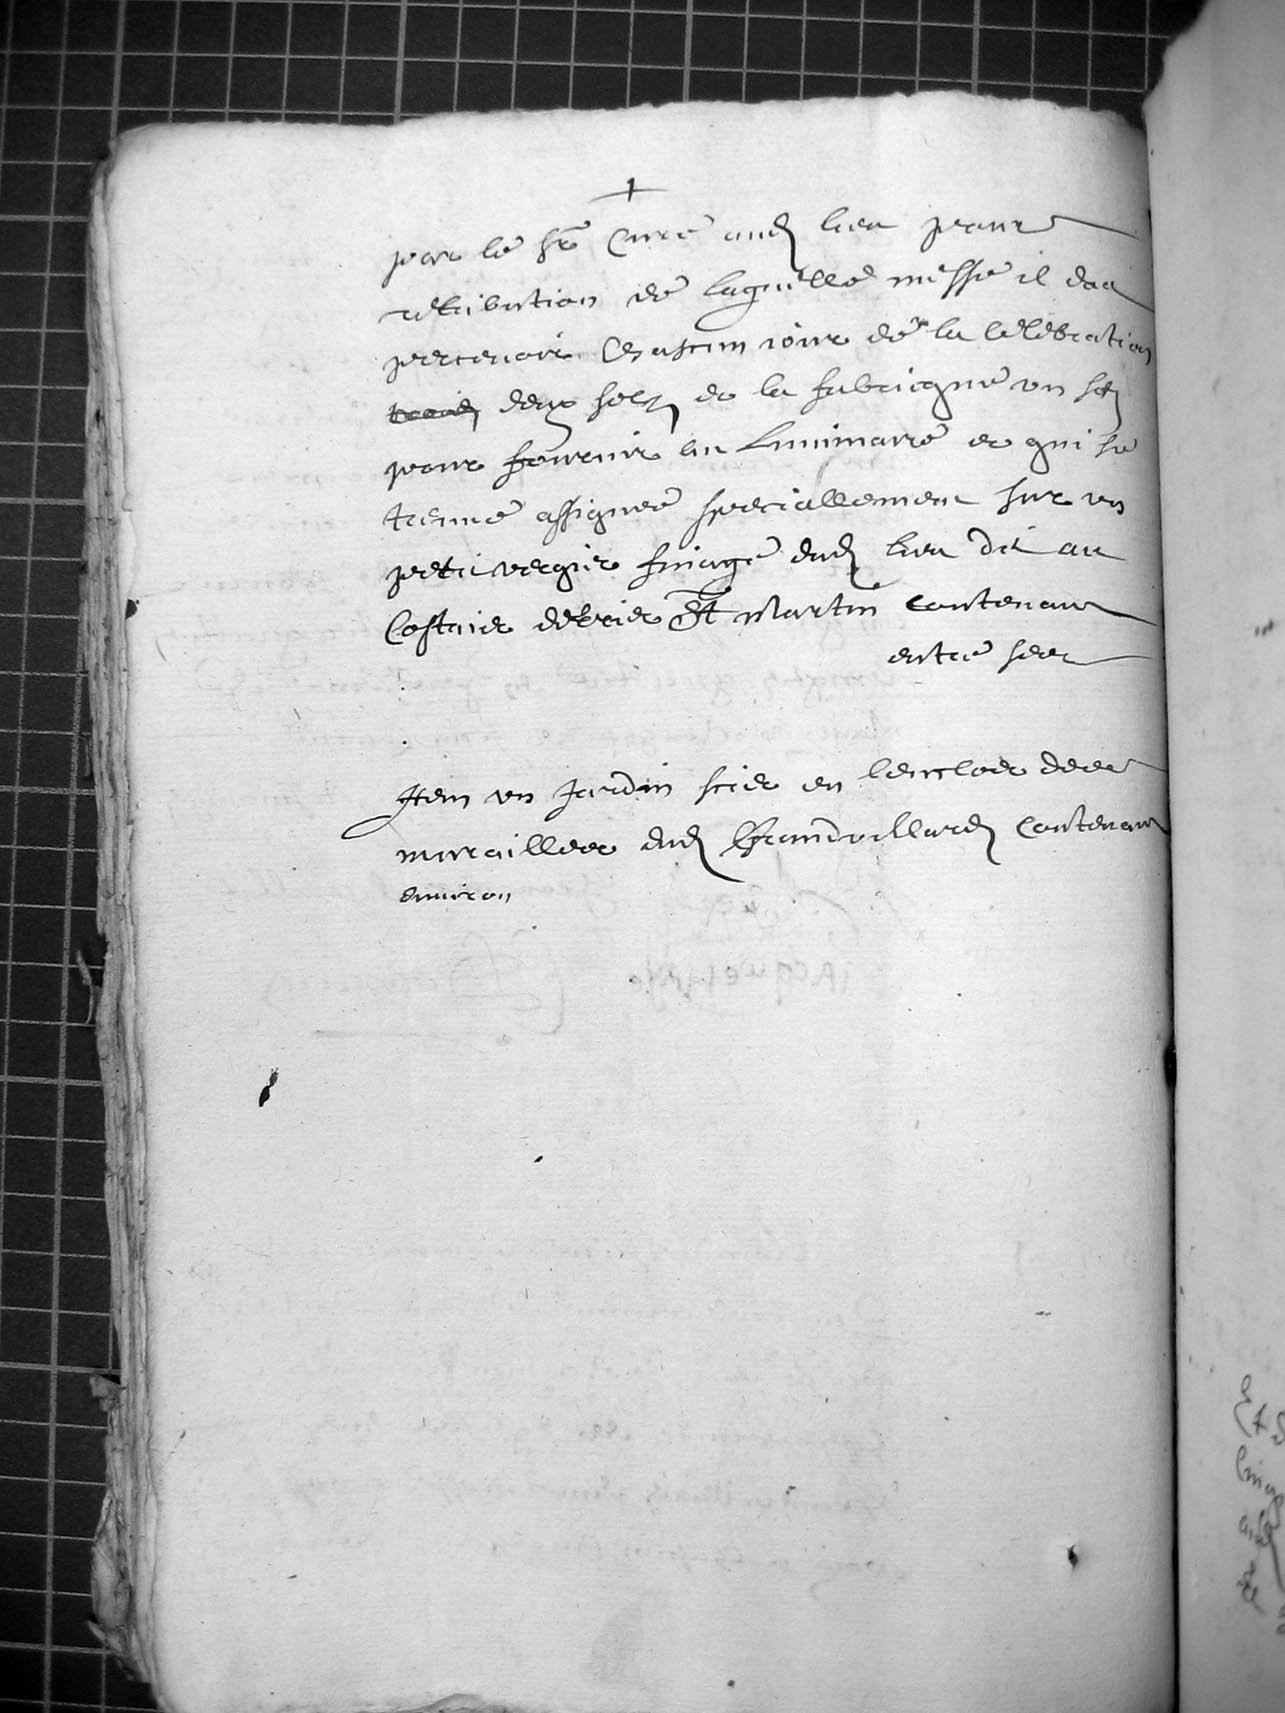 par le Sr Curé aud lieu pour
retribution de laquelle messe il doit
percevoir Chascun jour de la celebration
deux solz de la fabricque un solz
pour fournir au Luminaire et qui se
trenne assignee speciallement sur un
petit vergier finage dud lieu dit au
Costnier derrier St Martin contenant
entre ses
Item un Jardin scis en lenclos des
murailles dud Grandvillard Contenant
environ